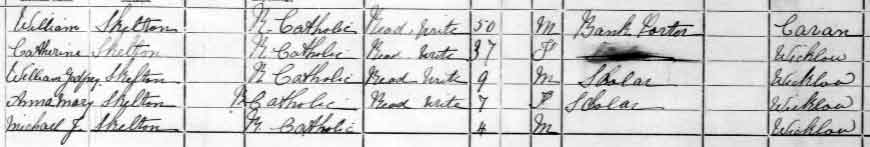 William Skelton R. Catholic Read, Write 50 M Bank Porter Cavan
Catherine Skelton R Catholic Read Write 37 F Wicklow
William Skelton R Catholic Read Write 9 M Scolar Wicklow
Anna Mary Skelton R Catholic Read Write 7 F Scolar Wicklow
Michael J. Skelton R. Catholic 4 M Wicklow